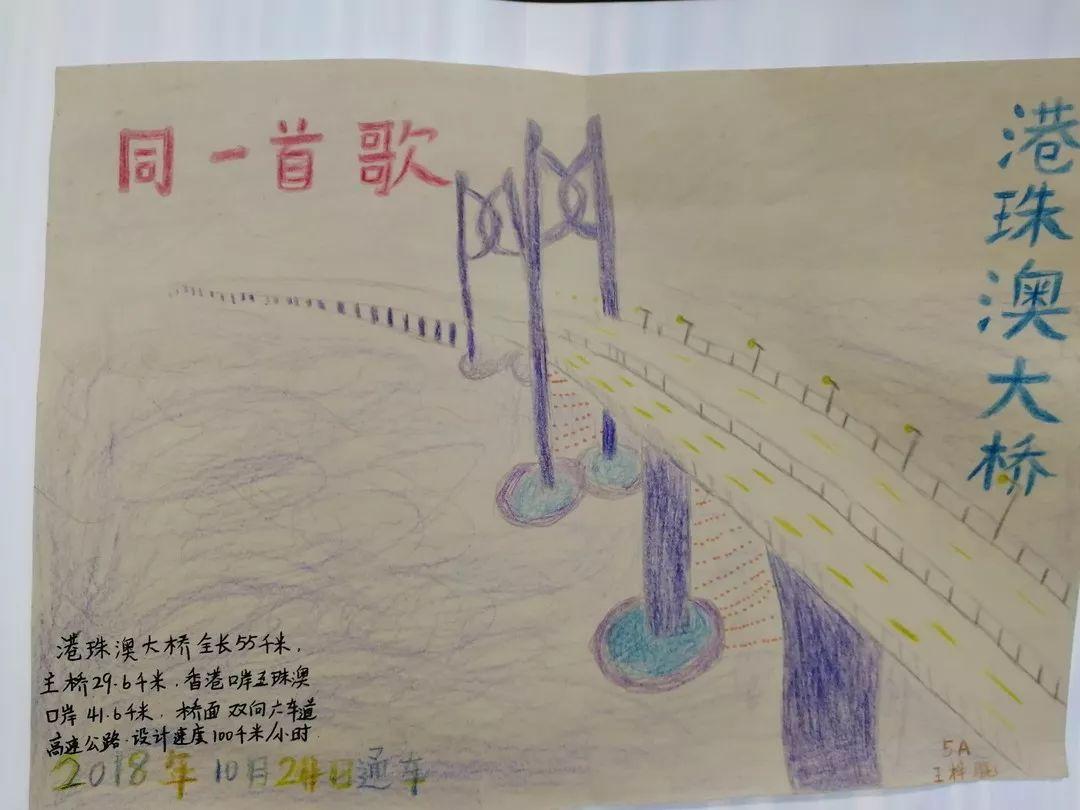 同一首歌
港珠澳大桥
港珠澳大桥全长55千米，
主桥29.6千米．香港口岸至珠澳
口岸 41.6千米．桥面 双向六车道
高速公路．设计速度100千米/小时．
2018年10月24日通车
5A
王梓